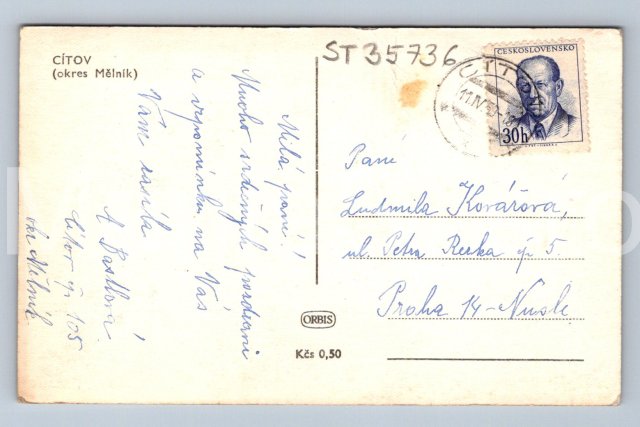 CÍTOV
(okres Mělník)
ST 35736
ČESKOSLOVENSKO
30h
Milá paní!
Mnoho srdečných pozdravů
a vzpomínku na Vás
Vám zasílá
A
Cítov čp 105
okr Mělník
Paní
Ludmila Kovářová,
ul. Petra Rezka čp 5.
Praha 14-Nusle
ORBIS
Kčs 0,50